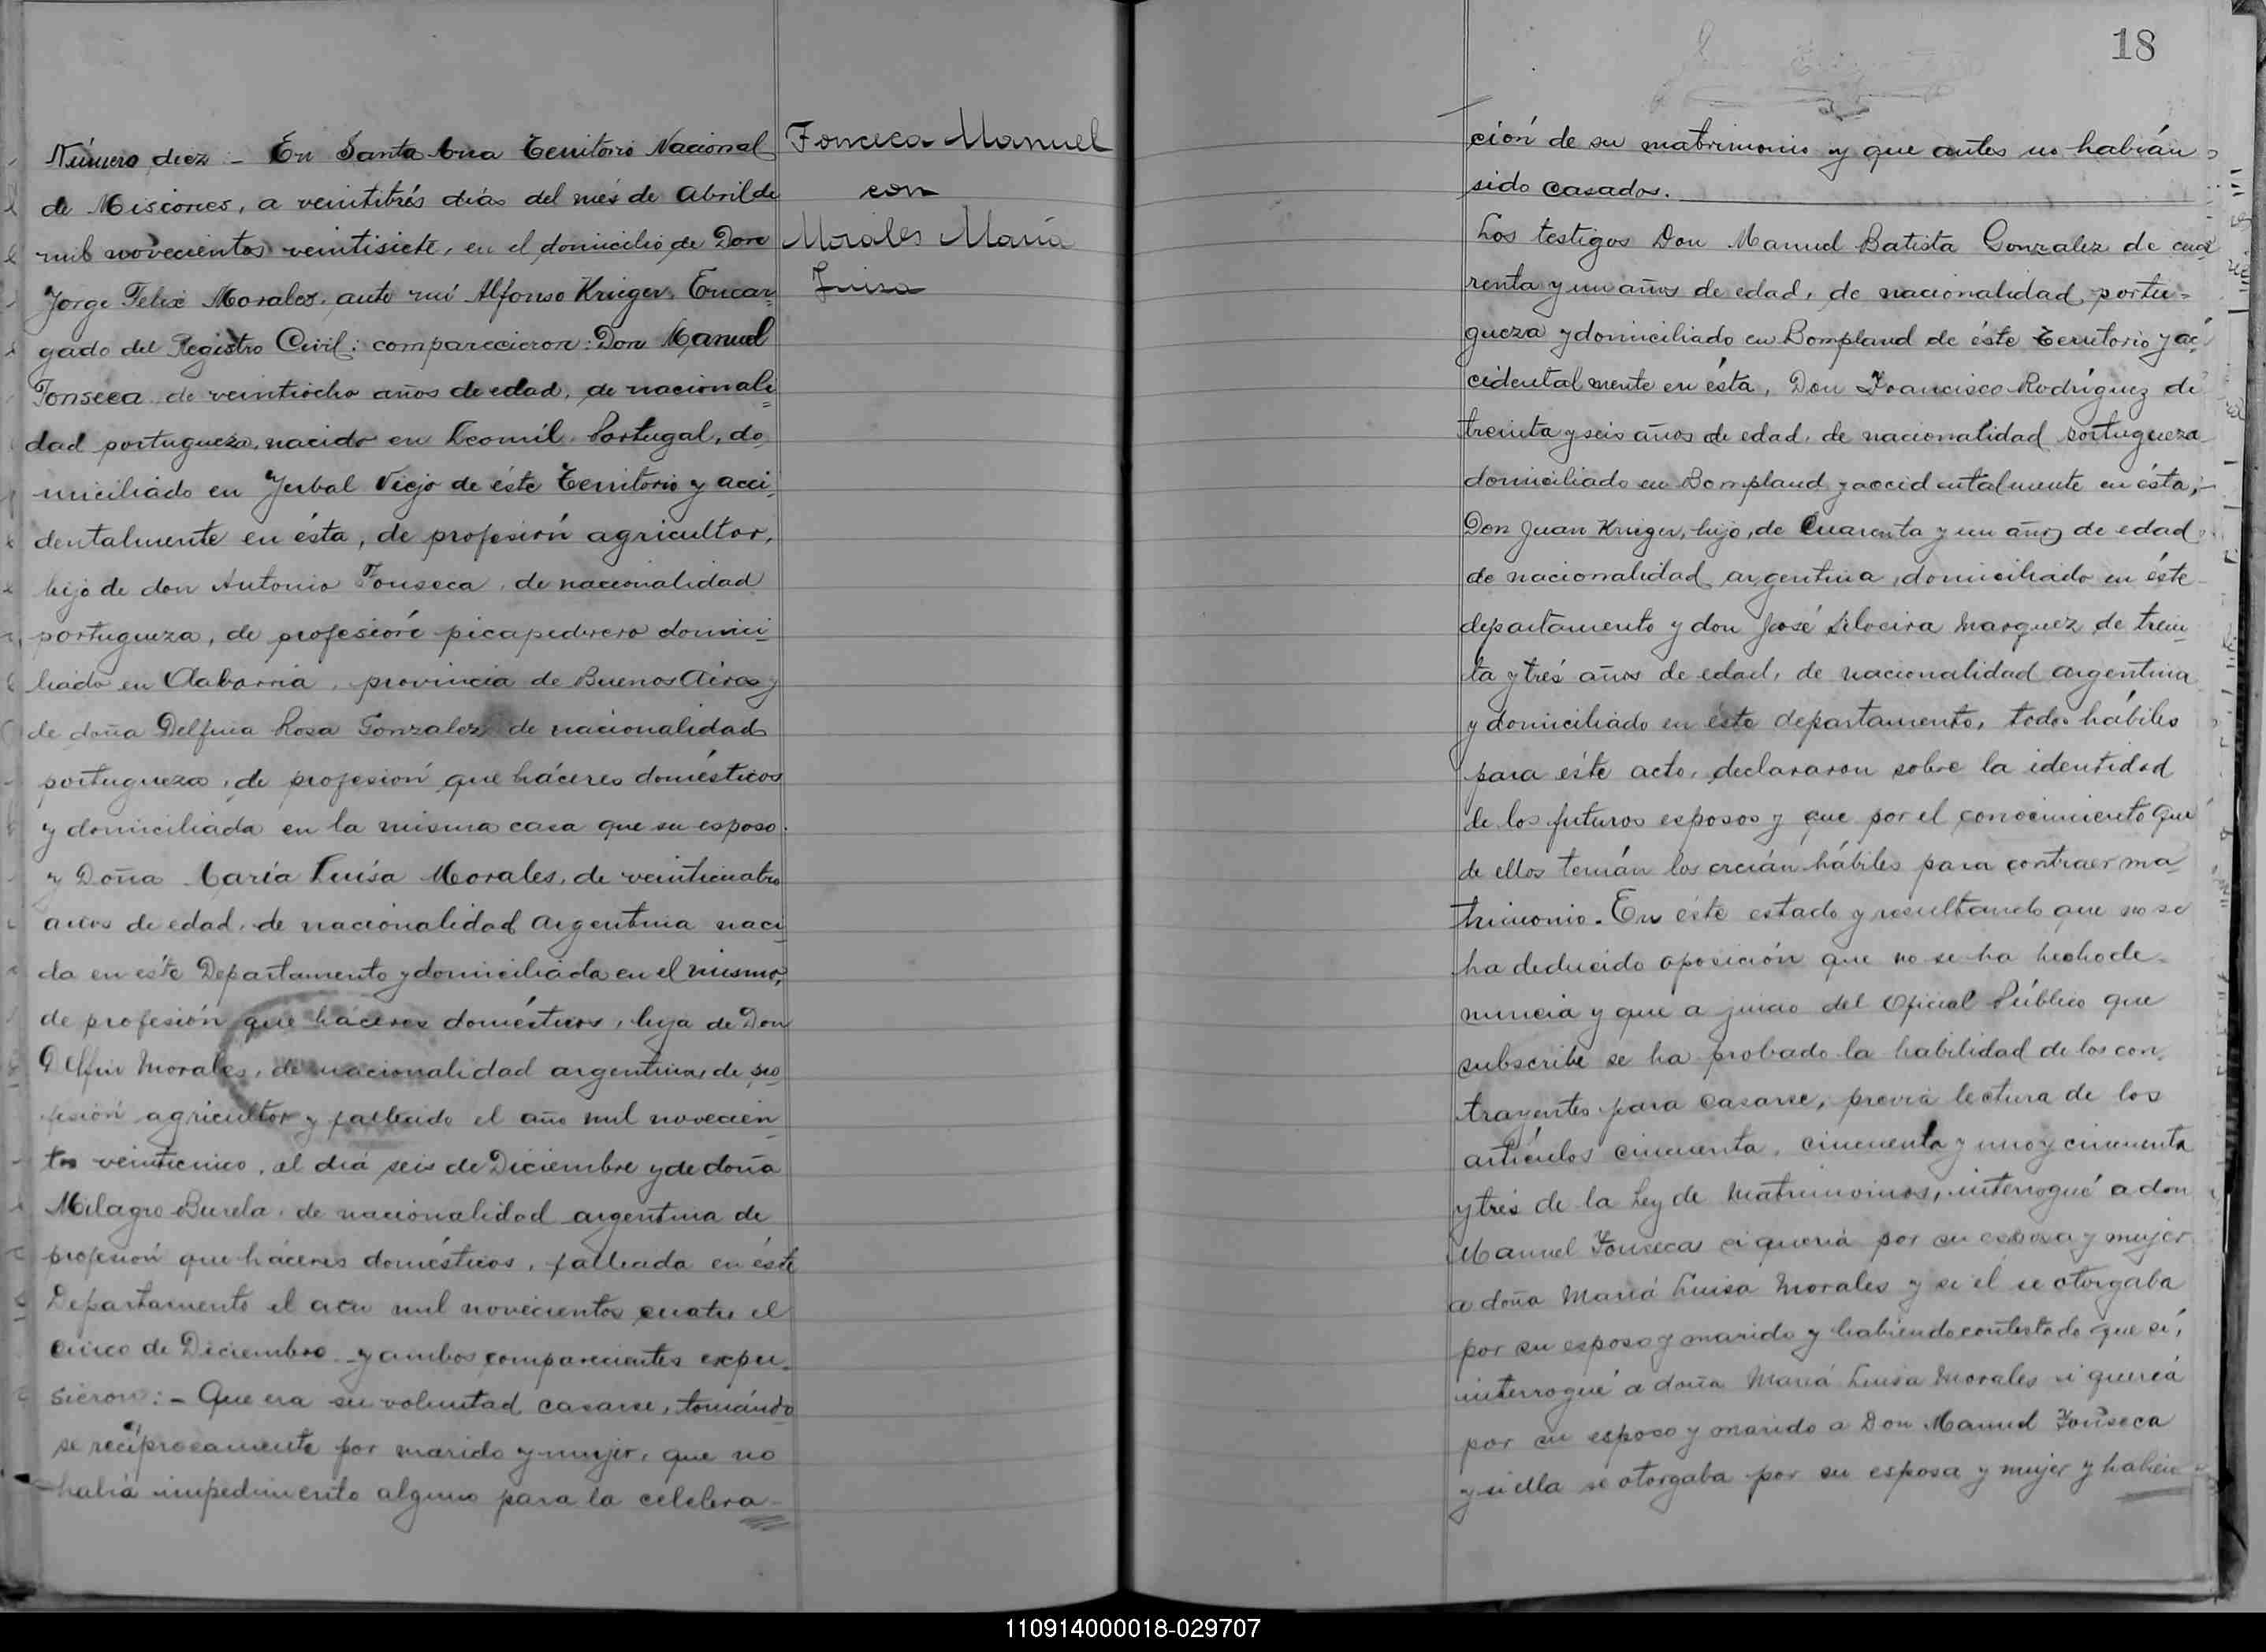 Número diez - En Santa Ana Territorio Nacional
de Misiones, a veintitrés días del més de Abril de
mil novecientos veintisiete, en el domicilio de Don
Jorge Felix Morales, ante mí Alfonso Krieger, Encar=
gado del Registro Civil: comparecieron: Don Manuel
Fonseca de veintiocho años de edad, de nacionali=
dad portugueza, nacido en Leomil Portugal, do-
miciliado en Yerbal Viejo de éste Territorio y acci-
dentalmente en ésta, de profesión agricultor,
hijo de don Antonio Fonseca, de nacionalidad
portugueza, de profesión picapedrero domici-
liado en Olabarria, provincia de Buenos Aires y
de doña Delfina Rosa Gonzalez de nacionalidad
portugueza, de profesión que háceres domésticos
y domiciliada en la misma casa que su esposo.
y Doña María Luisa Morales, de veinticuatro
años de edad, de nacionalidad argentina naci-
da en este Departamento y domiciliada en el mismo,
de profesión que háceres domésticos, hija de Don
Delfin Morales, de nacionalidad argentina, de pro
fesión agricultor y fallecido el año mil novecien-
tos veinticinco, el día seis de Diciembre y de doña
Milagro Burela, de nacionalidad argentina de
profesión que háceres domésticos, fallecida en éste
Departamento el año mil novecientos cuatro el
cinco de Diciembre y ambos comparecientes expu-
sieron: - Que era su voluntad casarse, tomándo
se recíprocamente por marido y mujer, que no
había impedimento alguno para la celebra-
Fonceca Manuel
con
Morales María
Luisa
18
ción de su matrimonio y que antes no habían
sido casados.
Los testigos Don Manuel Batista Gonzalez de cua-
renta y un años de edad, de nacionalidad portu=
gueza y domiciliado en Bompland de éste Territorio y ac-
cidentalmente en ésta, Don Francisco Rodríguez de
treinta y seis años de edad, de nacionalidad portugueza
domiciliado en Bompland y accidentalmente en ésta,
Don Juan Krieger, hijo, de cuarenta y un años de edad
de nacionalidad argentina, domiciliado en éste
departamento y don José Silveira Marquez de trein-
ta y trés años de edad, de nacionalidad argentina
y domiciliado en éste departamento, todos hábiles
para éste acto, declararon sobre la identidad
de los futuros esposos y que por el conocimiento que
de ellos tenían los creían hábiles para contraer ma-
trimonio. En éste estado y resultando que no se
ha deducido oposición que no se ha hecho de-
nuncia y que a juicio del Oficial Público que
subscribe se ha probado la habilidad de los con-
trayentes para casarse, previa lectura de los
artículos cincuenta, cincuenta y uno y cincuenta
y trés de la Ley de Matrimonios, interrogué a don
Manuel Fonseca si quería por su esposa y mujer
a doña María Luisa Morales y si él se otorgaba
por su esposo y marido y habiendo contestado que sí,
interrogué a doña María Luisa Morales si quería
por su esposo y marido a Don Manuel Fonseca
y si ella se otorgaba por su esposa y mujer y habien
110914000018-029707